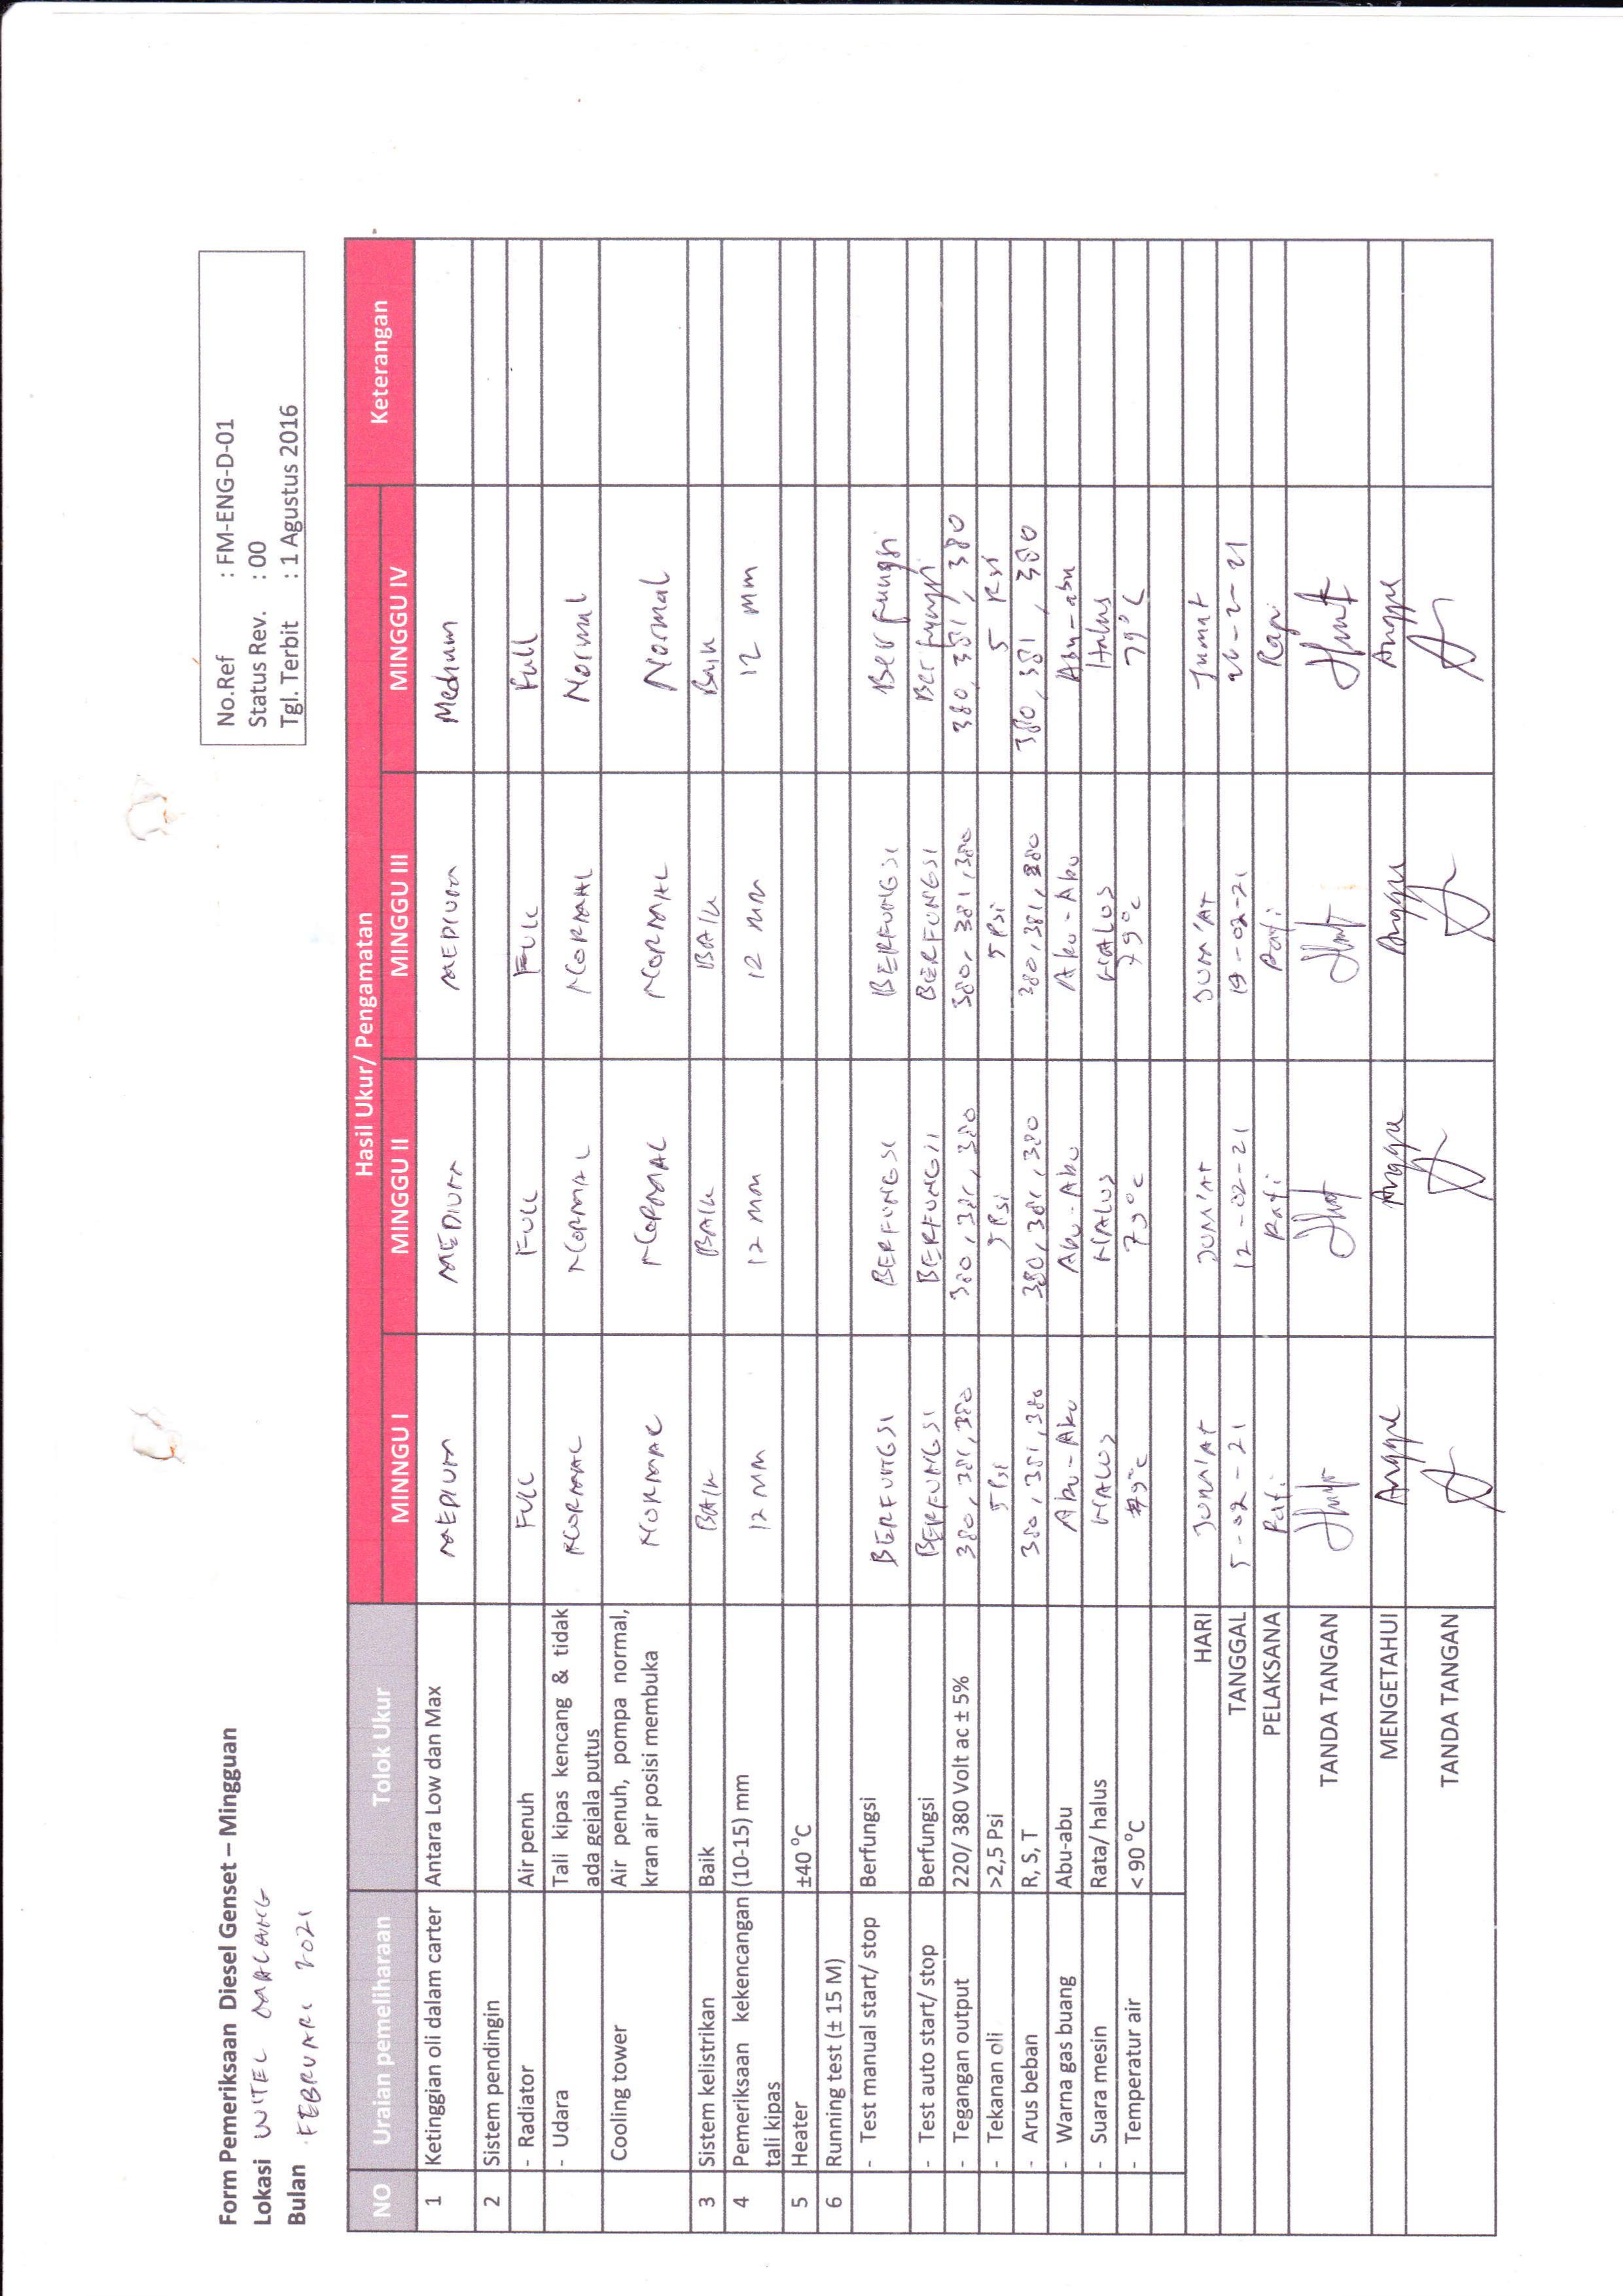 Form Pemeriksaan Diesel Genset – Mingguan
Lokasi WITEL MALANG
Bulan FEBRUARI 2021
No.Ref : FM-ENG-D-01
Status Rev. : 00
Tgl. Terbit : 1 Agustus 2016
NO Uraian pemeliharaan Tolok Ukur Hasil Ukur/ Pengamatan Keterangan
MINNGU I MINGGU II MINGGU III MINGGU IV
1 Ketinggian oli dalam carter Antara Low dan Max MEDIUM MEDIUM MEDIUM Medium
2 Sistem pendingin
- Radiator Air penuh FULL FULL FULL Full
- Udara Tali kipas kencang & tidak ada gejala putus NORMAL NORMAL NORMAL Normal
Cooling tower Air penuh, pompa normal, kran air posisi membuka NORMAL NORMAL NORMAL Normal
3 Sistem kelistrikan Baik BAIK BAIK BAIK Baik
4 Pemeriksaan kekencangan tali kipas (10-15) mm 12 MM 12 MM 12 MM 12 mm
5 Heater ±40 °C
6 Running test (± 15 M)
- Test manual start/ stop Berfungsi BERFUNGSI BERFUNGSI BERFUNGSI Berfungsi
- Test auto start/ stop Berfungsi BERFUNGSI BERFUNGSI BERFUNGSI Berfungsi
- Tegangan output 220/ 380 Volt ac ± 5% 380, 381, 380 380, 381, 380 380, 381, 380 380, 381, 380
- Tekanan oli >2,5 Psi 5 Psi 5 Psi 5 Psi 5 Psi
- Arus beban R, S, T 380, 381, 380 380, 381, 380 380, 381, 380 380, 381, 380
- Warna gas buang Abu-abu Abu-Abu Abu-Abu Abu-Abu Abu-abu
- Suara mesin Rata/ halus HALUS HALUS HALUS Halus
- Temperatur air < 90 °C 79°C 79°C 79°C 79°C
HARI JUM'AT JUM'AT JUM'AT Jumat
TANGGAL 5-02-21 12-02-21 19-02-21 26-2-21
PELAKSANA Rafi Rafi Rafi Rafi
TANDA TANGAN
MENGETAHUI Anggre Anggre Anggre Anggre
TANDA TANGAN